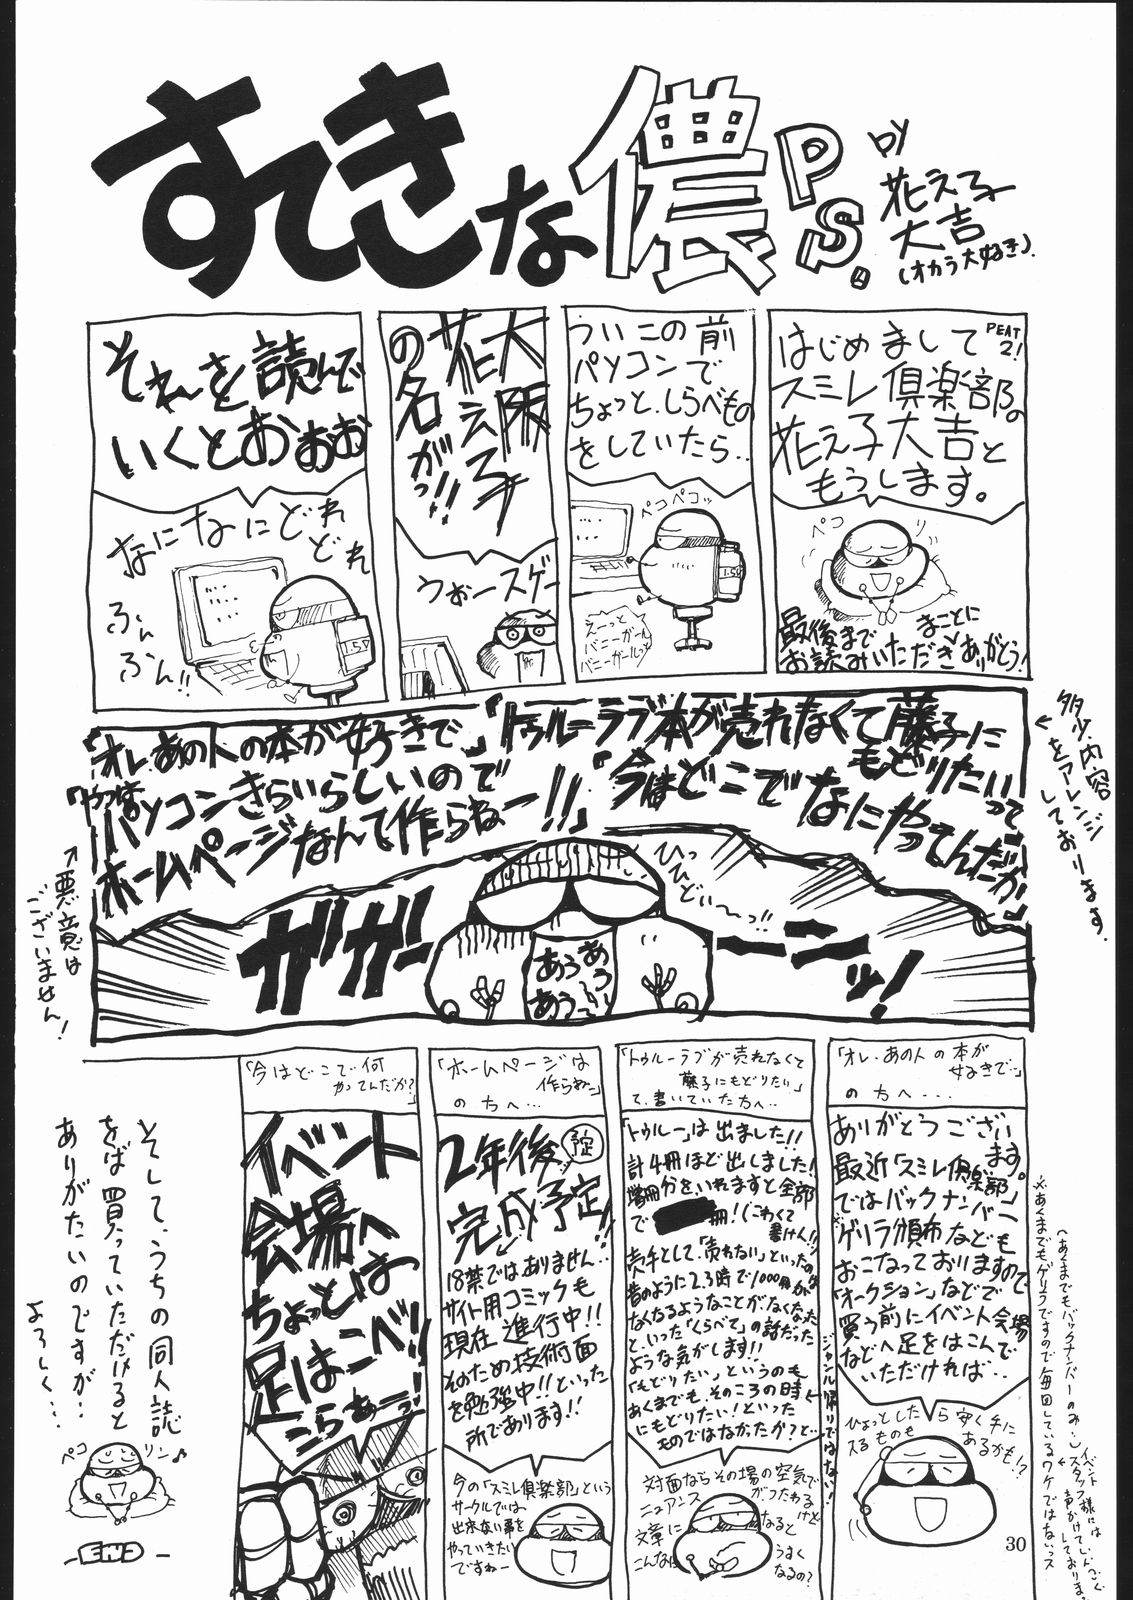 すてきな儂
P.S.
by
花え子
大吉
(オカラ大好き).
PEAT
2!
はじめまして
スミレ倶楽部の
花え子大吉と
もうします。
ペコ
リ
最後まで
まことに
お読みいただき
ありがとう!
ういこの前
パソコンで
ちょっと、しらべもの
をしていたら..
ペコペコッ
えーっと
バニーガール
バニーガールっと
大阪
花え子
の名が
っ!!
うぉースゲー
それを読んで
いくとおぉぉ
なになにどれ
どれ
ふん
ふん!!
1.5V
「トゥルーラブ本が売れなくて藤子に
もどりたいって」
「今はどこで
なにやってんだか」
「オレ、あの人の本が好きで」
「やつは
パソコンきらいらしいので
ホームページなんて作らねー!!」
多少、内容
をアレンジ
しております。
悪意は
ございません!
ひっ
ひどぃ〜っ!!
ガガーーーンッ!
あうあう
あうあう〜
「オレ、あの人の本が
好きで…」
の方へ…
ありがとうござい
ます。
最近「スミレ倶楽部」
ではバックナンバー
ゲリラ頒布なども
おこなっておりますので
「オークション」などで
買う前にイベント会場
などへ足をはこんで
いただければ…
ひょっとしたら安く手に
入るものも
あるかも!?
※あくまでもゲリラですので毎回しているワケではないっス
(あくまでもバックナンバーのみ…)
「トゥルーラブが売れなくて
藤子にもどりたい」
て、書いていた方へ…
「トゥルー」は出ました!!
計4冊ほど出しました!
増冊分をいれますと全部
で
冊!(こわくて
書けん!!)
売手として「売れない」といったのは
昔のように2.3時で1000冊が
なくなるようなことがなくなった
といった「くらべて」の話だった
ような気がします!!
「もどりたい」というのも
あくまでも、そのころの時
にもどりたい!といった
ものではなかったか?と…
ジャンル帰りではない!
対面ならその場の空気で
ニュアンス
がつたわる
けど
文章に
なると
こんなに
うまく
なるの?
「ホームページは
作らねー」
の方へ…
2年後
予定
完成予定!!
18禁ではありません…
サイト用コミックも
現在進行中!!
そのため技術面
を勉強中!!といった
所であります!!
今の「スミレ倶楽部」という
サークルでは
出来ない事を
やっていきたい
ですねー
「今はどこで何
やってんだか?」
イベント
会場へ
ちょっとは
足はこべ!!
こらぁーっ!
そして、うちの同人誌
をば買っていただけると
ありがたいのですが…
よろしく…
ペコ
リン♪
-END-
30